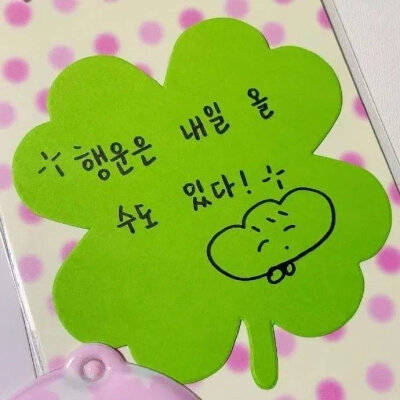 행운은 내일 올
수도 있다!